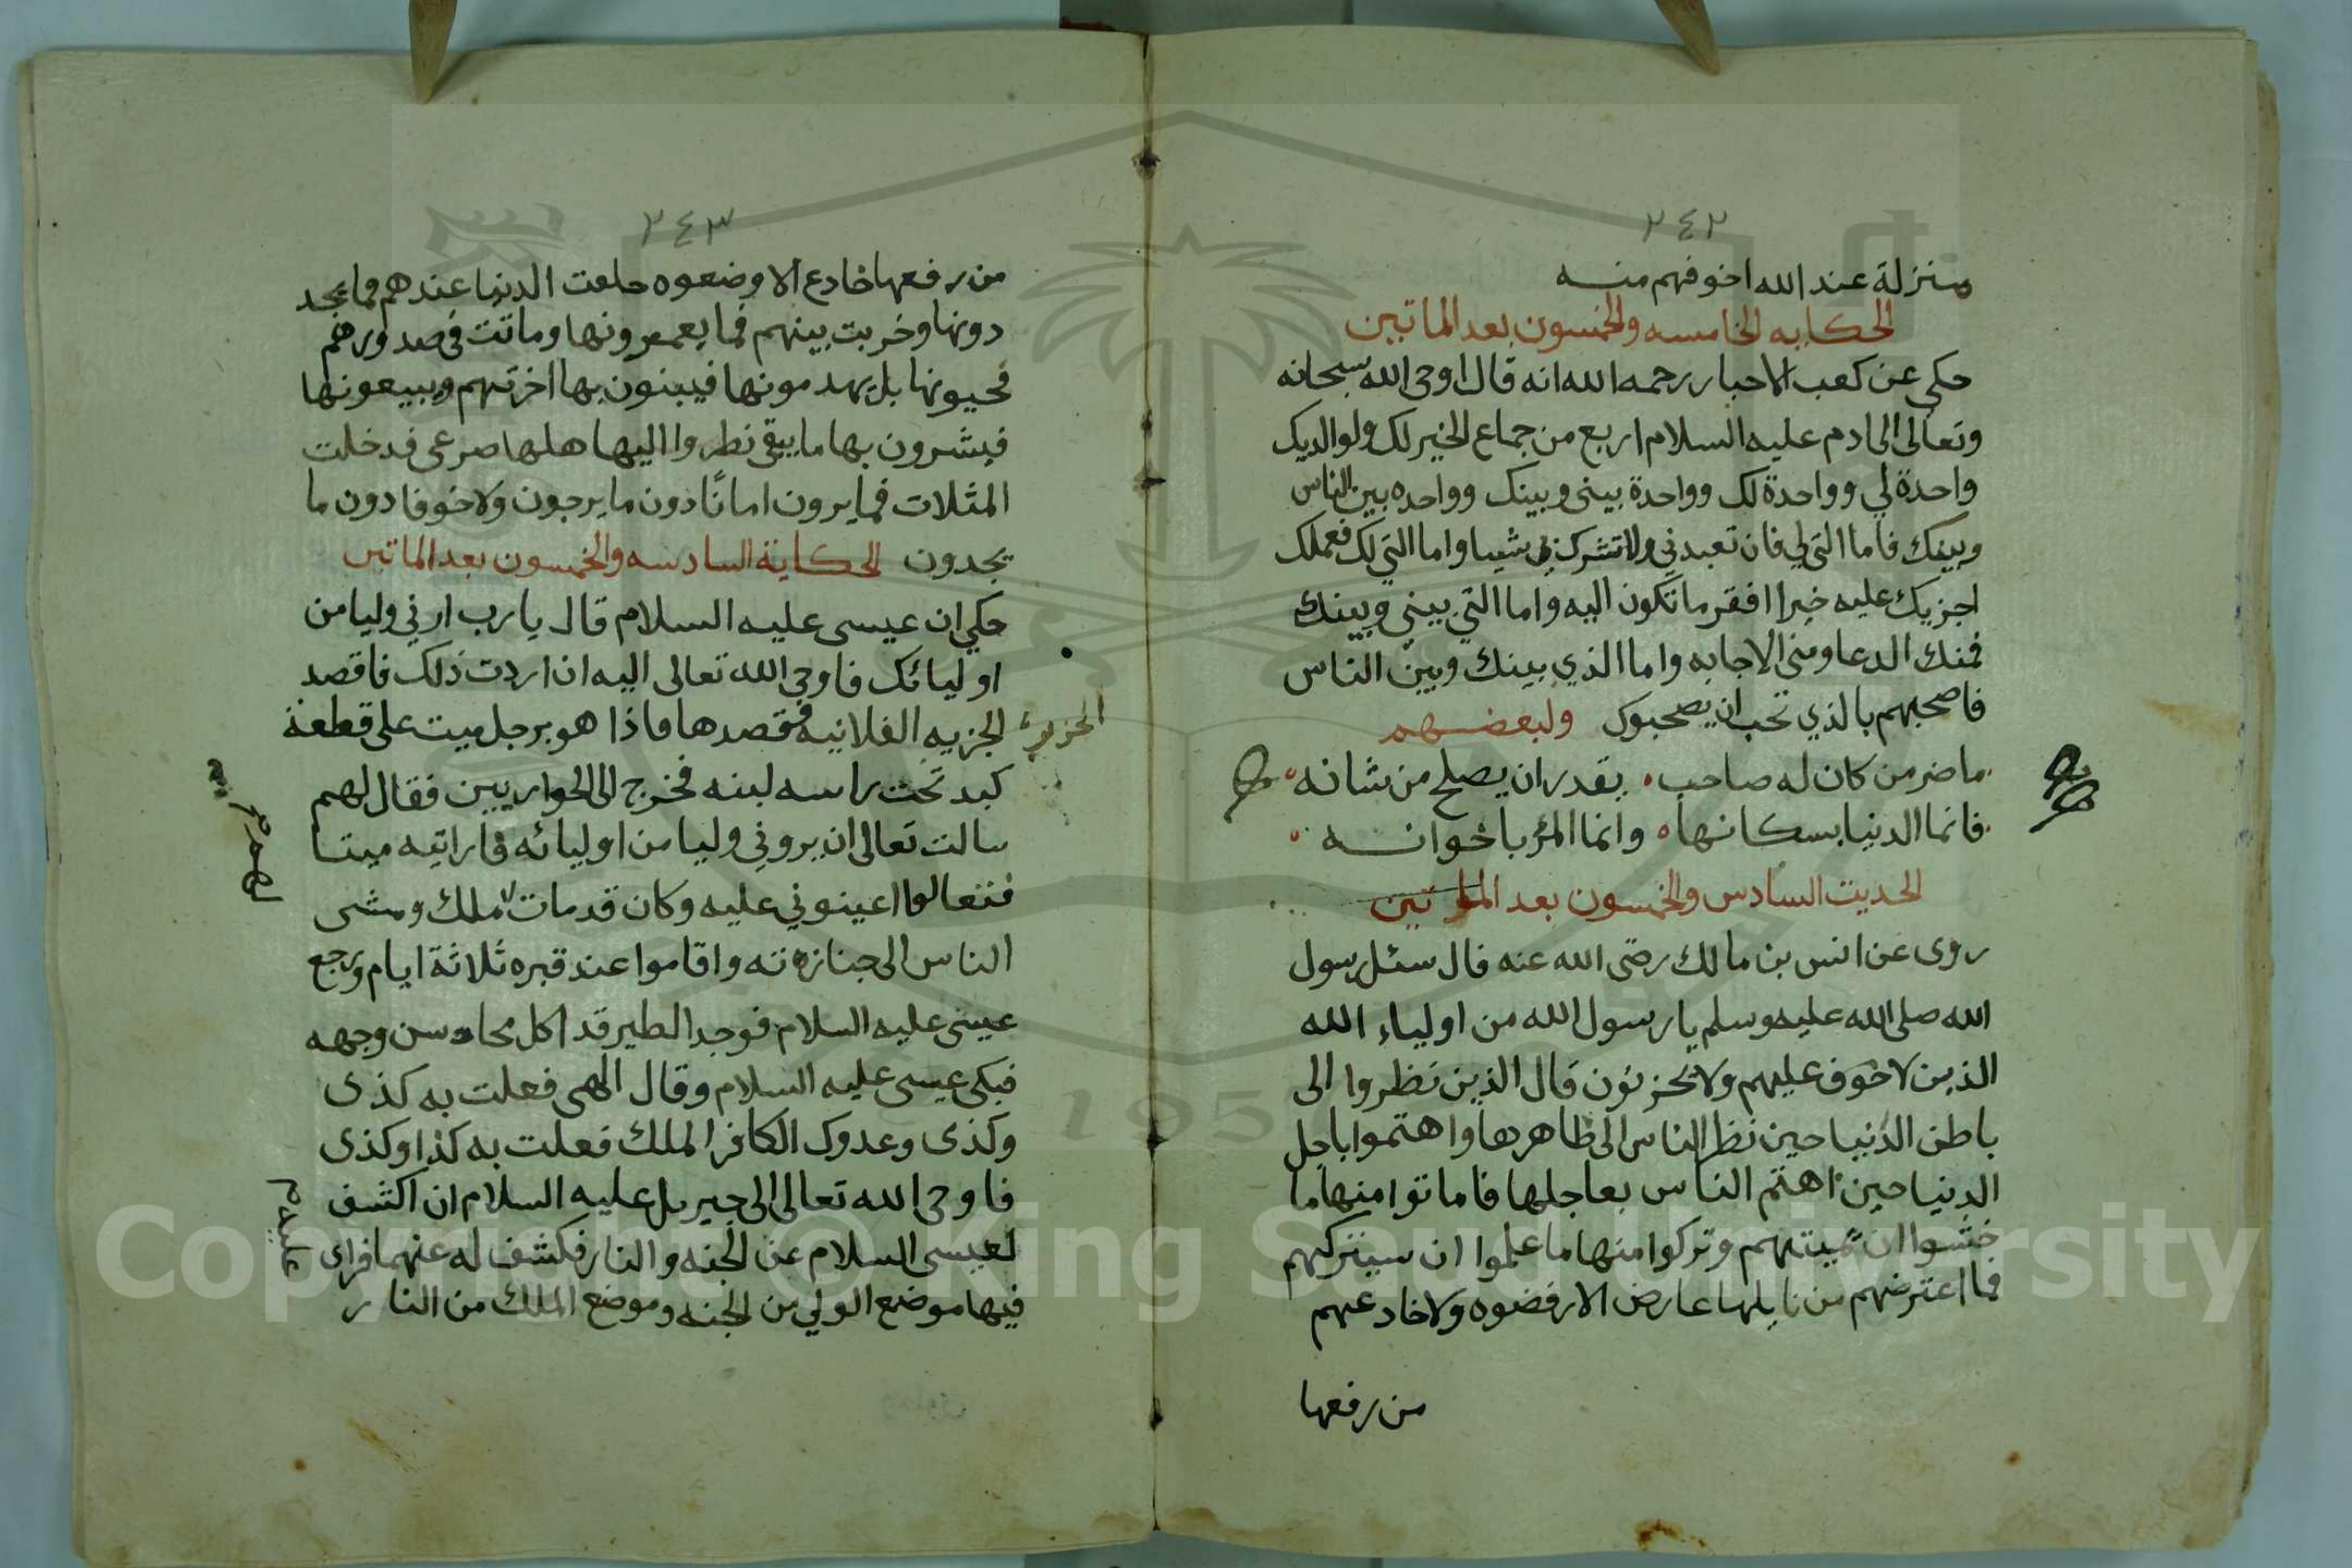 ٢٤٢
منزلة عند الله اخوفهم منه
الحكايه الخامسه والخمسون بعد الماتين
حكى عن كعب الاحبار رحمه الله انه قال اوحى الله سبحانه
وتعالى الى ادم عليه السلام اربع من جماع الخير لك ولوالديك
واحدة لي وواحدة لك وواحدة بيني وبينك وواحده بين الناس
وبينك فاما التي لي فان تعبدني ولا تشرك بي شيا واما التي لك فعملك
اجزيك عليه خيرا افقر ما تكون اليه واما التي بيني وبينك
فمنك الدعا ومني الاجابه واما الذي بينك وبين الناس
فاصحبهم بالذي تحب ان يصحبوك ولبعضهم
ما ضر من كان له صاحب يقدر ان يصلح من شانه
فانما الدنيا بسكانها وانما المرٔ باخوانه
الحديث السادس والخمسون بعد الماتين
روى عن انس بن مالك رضى الله عنه قال سئل رسول
الله صلى الله عليه وسلم يا رسول الله من اولياء الله
الذين لا خوف عليهم ولا يحزنون قال الذين نظروا الى
باطن الدنيا حين نظر الناس الى ظاهرها واهتموا باجل
الدنيا حين اهتم الناس بعاجلها فاماتوا منها ما
خشوا ان يميتهم وتركوا منها ما علموا ان سيتركهم
فما اعترضهم من نايلها عارض الا رفضوه ولا خادعهم
من رفعها
٢٤٣
من رفعها خادع الا وضعوه خلقت الدنيا عندهم فما
دونها وخربت بينهم فما يعمرونها وماتت في صدورهم
فحيونها بل يهدمونها فيبنون بها اخرتهم ويبيعونها
فيشرون بها ما يبقى نظروا اليها هلها صرعى قد خلت
المثلات فما يرون امانًا دون ما يرجون ولا خوفا دون ما
يجدون الحكاية السادسه والخمسون بعد الماتين
حكي ان عيسى عليه السلام قال يا رب ارني وليا من
اوليائك فاوحى الله تعالى اليه ان اردت ذلك فاقصد
الجزيه الفلانيه فقصدها فاذا هو برجل ميت على قطعة
الجزيرة
كبد تحت راسه لبنه فخرج الى الحواريين فقال لهم
سالت تعالى ان يروني وليا من اوليائه فارانيه ميتا
فتعالوا اعينوني عليه وكان قد مات ملك ومشى
الناس الى جنازته واقاموا عند قبره ثلاثة ايام ورجع
عيسى عليه السلام فوجد الطير قد اكل محاسن وجهه
فبكى عيسى عليه السلام وقال الهى فعلت به كذى
وكذى وعدوك الكافر الملك فعلت به كذا وكذى
فاوحى الله تعالى الى جبريل عليه السلام ان اكشف
لعيسى السلام عن الجنه والنار فكشف له عنهما فراى
عليه
فيها موضع الولي من الجنه وموضع الملك من النار
Copyright © King Saud University
195